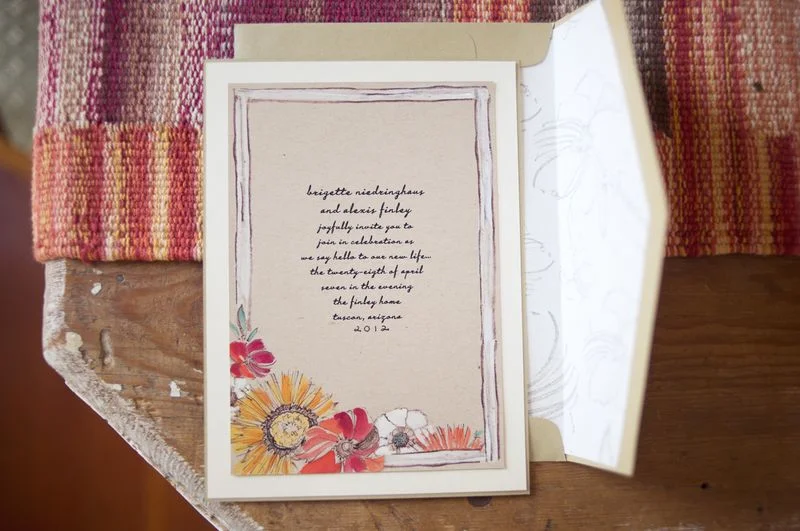 brigette niedringhaus
and alexis finley
joyfully invite you to
join in celebration as
we say hello to our new life...
the twenty-eigth of april
seven in the evening
the finley home
tuscon, arizona
2012